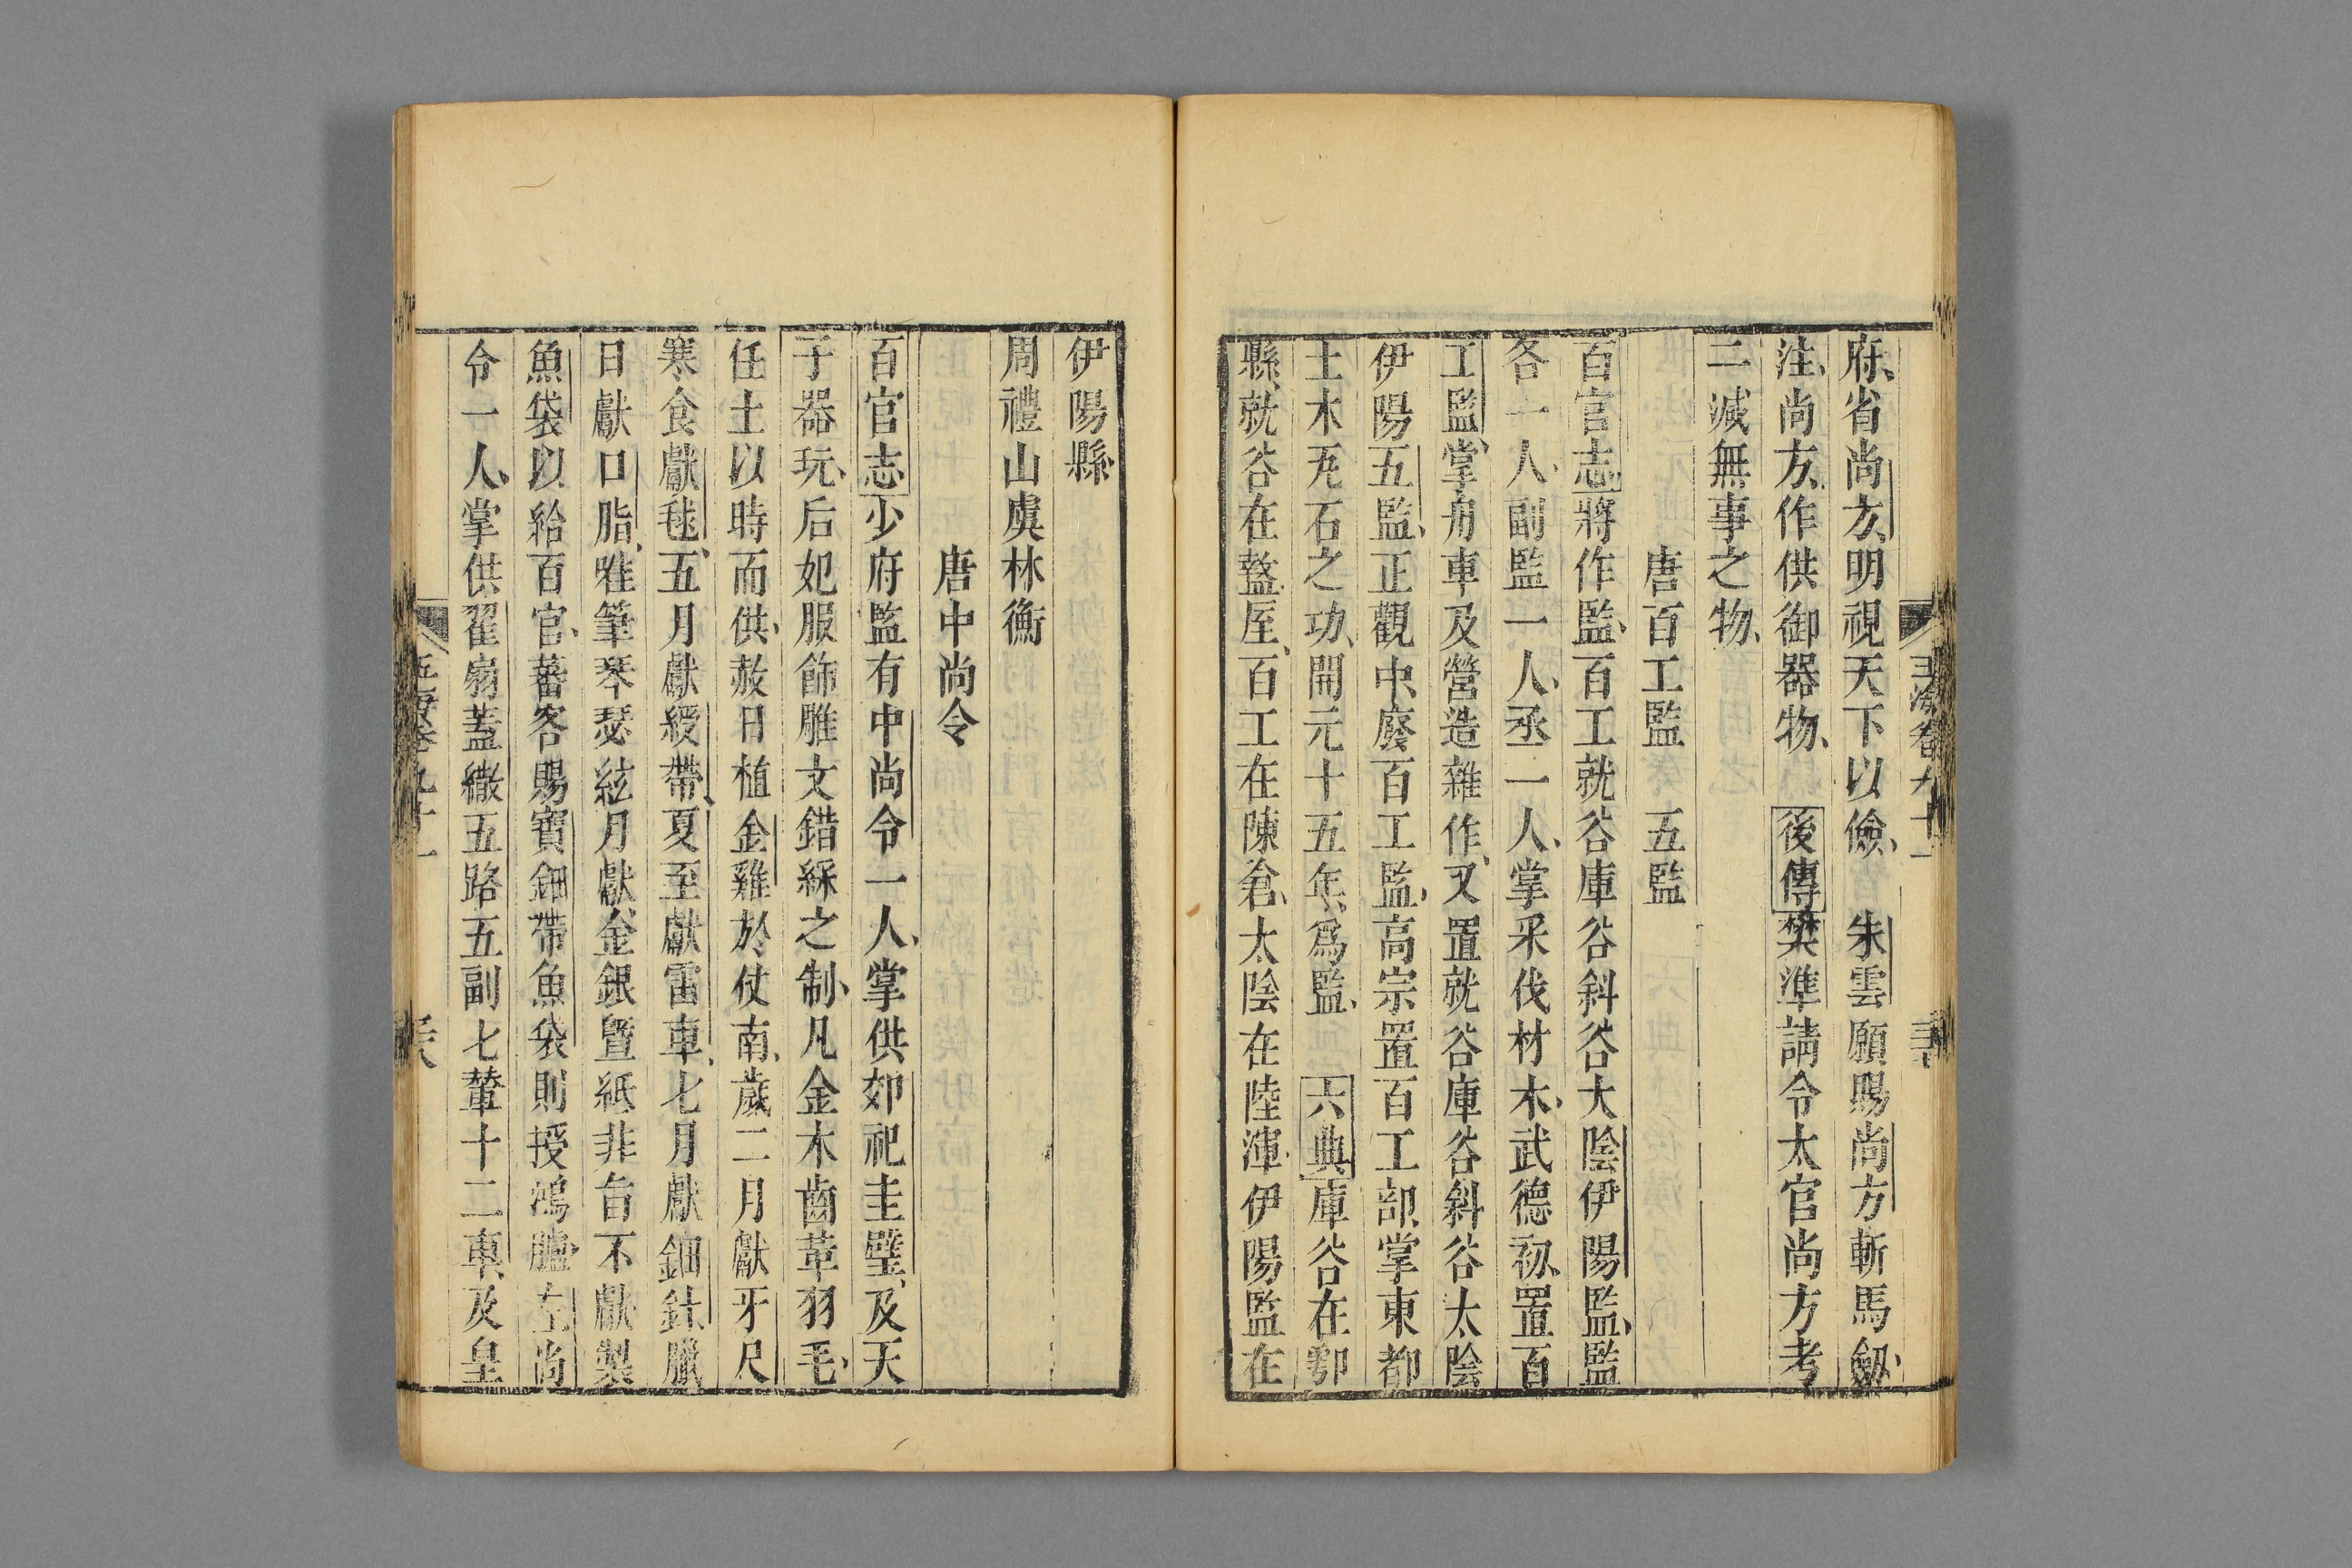 府省尚方明視天下以儉　朱雲願賜尚方斬馬劔
注尚方作供御器物　後傳樊準請令太官尚方考
二減無事之物
唐百工監　五監
百官志將作監百工就谷庫谷斜谷大陰伊陽監監
各一人副監一人丞一人掌采伐材木武德初置百
工監掌舟車及營造雜作又置就谷庫谷斜谷太陰
伊陽五監正觀中廢百工監高宗置百工部掌東都
土木瓦石之功開元十五年爲監　六典庫谷在鄠
縣就谷在盩厔百工在陳倉太陰在陸渾伊陽監在
伊陽縣
周禮山虞林衡
唐中尚令
百官志少府監有中尚令一人掌供郊祀圭璧及天
子器玩后妃服飾雕文錯綵之制凡金木齒革羽毛
任土以時而供赦日植金雞於仗南歲二月獻牙尺
寒食獻毬五月獻綬帶夏至獻雷車七月獻鈿針臘
日獻口脂唯筆琴瑟絃月獻金銀暨紙非旨不獻製
魚袋以給百官蕃客賜寶鈿帶魚袋則授鴻臚左尚
令一人掌供翟扇蓋繖五路五副七輦十二車及皇
玉海卷九十一